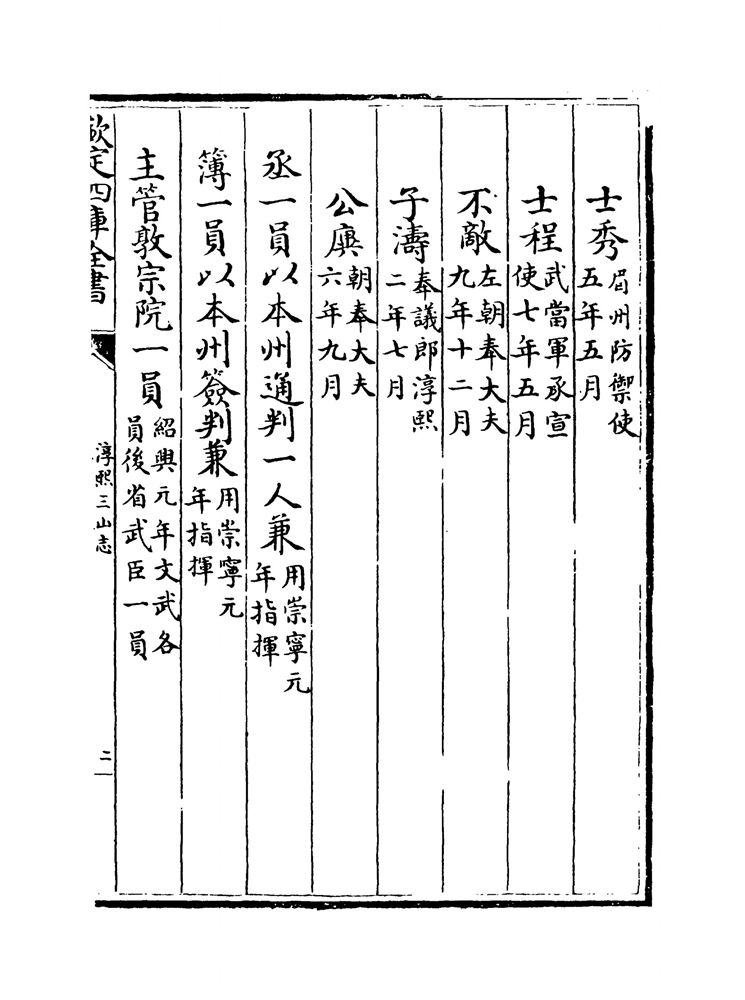 士秀眉州防禦使五年五月
士程武當軍承宣使七年五月
不敵左朝奉大夫九年十二月
子濤奉議郎淳熙二年七月
公廙朝奉大夫六年九月
丞一員以本州通判一人兼用崇寧元年指揮
簿一員以本州簽判兼用崇寧元年指揮
主管敦宗院一員紹興元年文武各員後省武臣一員
欽定四庫全書
淳熙三山志
二